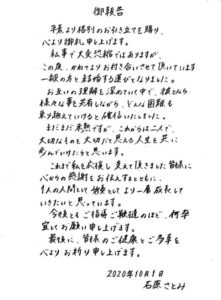 御報告
平素より格別のお引き立てを賜り、
心より御礼申し上げます。
私事で大変恐縮ではありますが、
この度、かねてよりお付き合いさせて頂いています
一般の方と結婚する運びとなりました。
お互いの理解を深めていく中で、彼となら
様々な事を共有しながら、どんな困難も
乗り越えていけると確信いたしました。
まだまだ未熟ですが、これからは二人で、
大切なものを大切だと思える人生を共に
歩んでいけたらと思います。
これまで私を応援し支えて頂きました皆様に
心からの感謝をお伝えするとともに、
1人の人間として、女優としてより一層成長して
いきたいと思っています。
今後ともご指導ご鞭撻のほど、何卒
宜しくお願い申し上げます。
最後に、皆様のご健康とご多幸を
心よりお祈り申し上げます。
2020年10月1日
石原さとみ